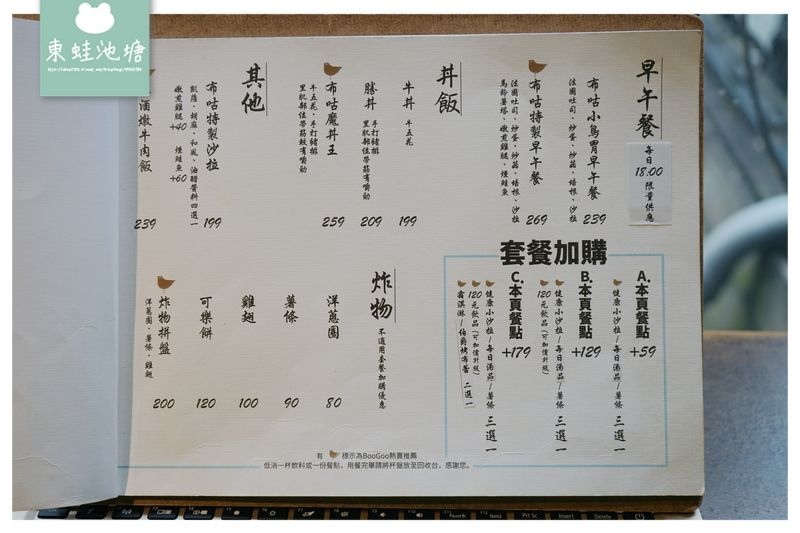 東蛙池塘
早午餐
每日
18:00
限量供應
布咕小鳥胃早午餐 239
法國吐司、炒蛋、炒菇、培根、沙拉
布咕特製早午餐 269
法國吐司、炒蛋、炒菇、培根、沙拉
馬鈴薯塔、嫩煎雞腿、燻鮭魚
丼飯
牛丼 牛五花 199
勝丼 手打豬排 209
里肌部位帶筋較有嚼勁
布咕魔丼王 259
牛五花、手打豬排
里肌部位帶筋較有嚼勁
其他
布咕特製沙拉 199
凱薩、胡麻、和風、油醋醬料四選一
嫩煎雞腿+40 燻鮭魚+60
酒燉牛肉飯 239
套餐加購
A.本頁餐點 +59
健康小沙拉/每日湯品/薯條 三選一
B.本頁餐點 +129
健康小沙拉/每日湯品/薯條 三選一
120元飲品(可加價升級)
C.本頁餐點 +179
健康小沙拉/每日湯品/薯條 三選一
120元飲品(可加價升級)
霜淇淋/伯爵烤布蕾 二選一
炸物 不適用套餐加購優惠
洋蔥圈 80
薯條 90
雞翅 100
可樂餅 120
炸物拼盤 200
洋蔥圈、薯條、雞翅
有 標示為BooGoo熱賣推薦
低消一杯飲料或一份餐點,用餐完畢請將杯盤放至回收台,感謝您。
F11 Pause/Br
F12 ScrLk
Prt Sc
Insert
Delete